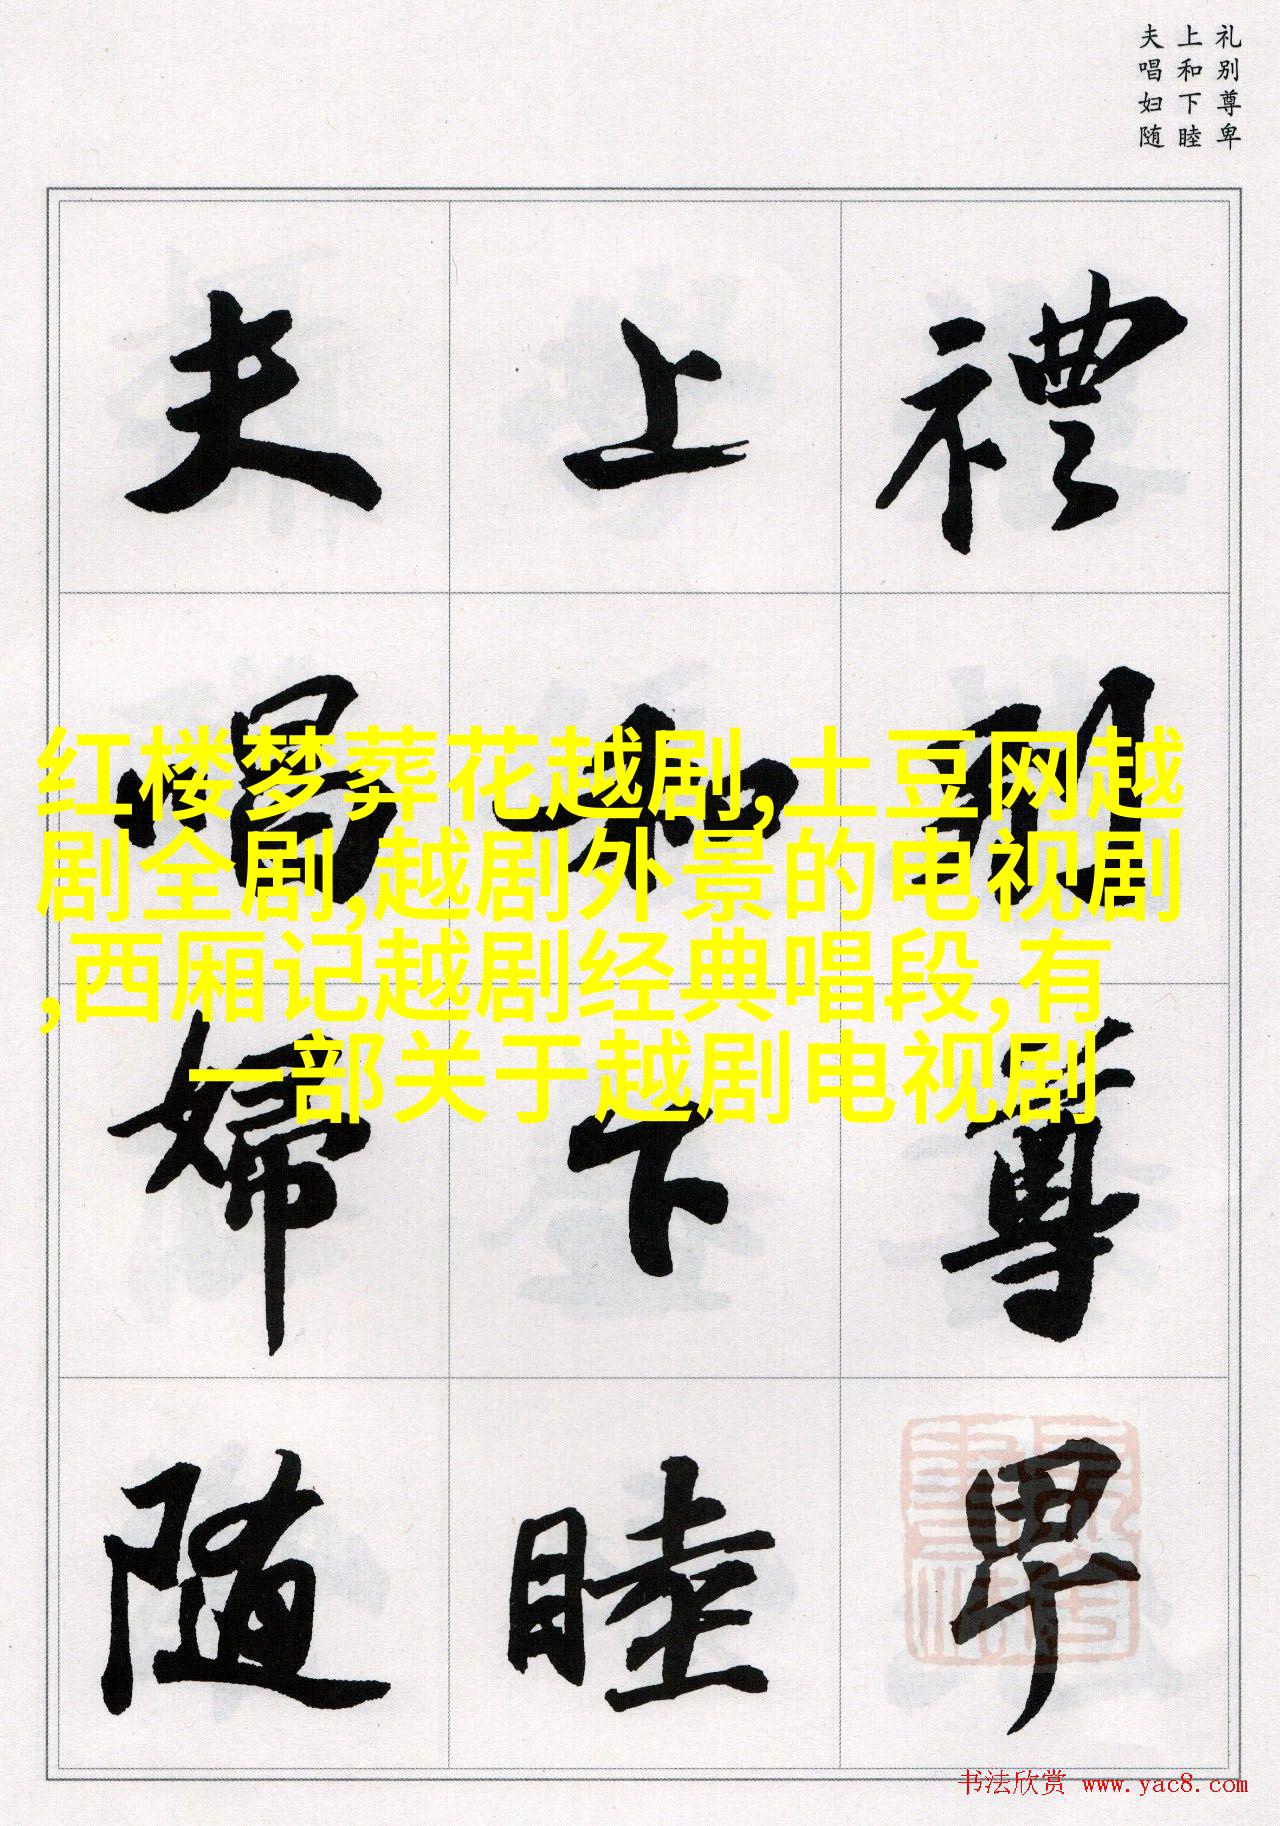 礼别尊卑
上和下睦
夫唱妇随
禮别尊卑
上和下睦
夫唱婦随
红楼梦葬花越剧,土豆网越
剧全剧,越剧外景的电视剧
,西厢记越剧经典唱段,有
一部关于越剧电视剧
书法欣赏 www.yac8.com